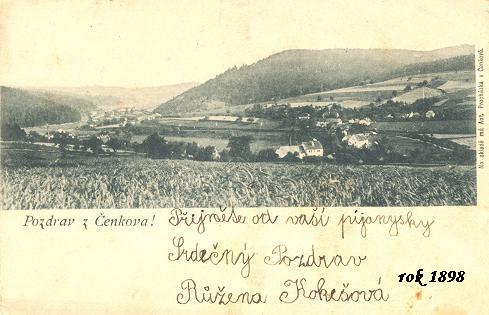 Na skladě má Ant. Procházka v Čenkově.
Pozdrav z Čenkova!
Přijměte od vaší pijanysky
Srdečný Pozdrav
Růžena Kokešová
rok 1898